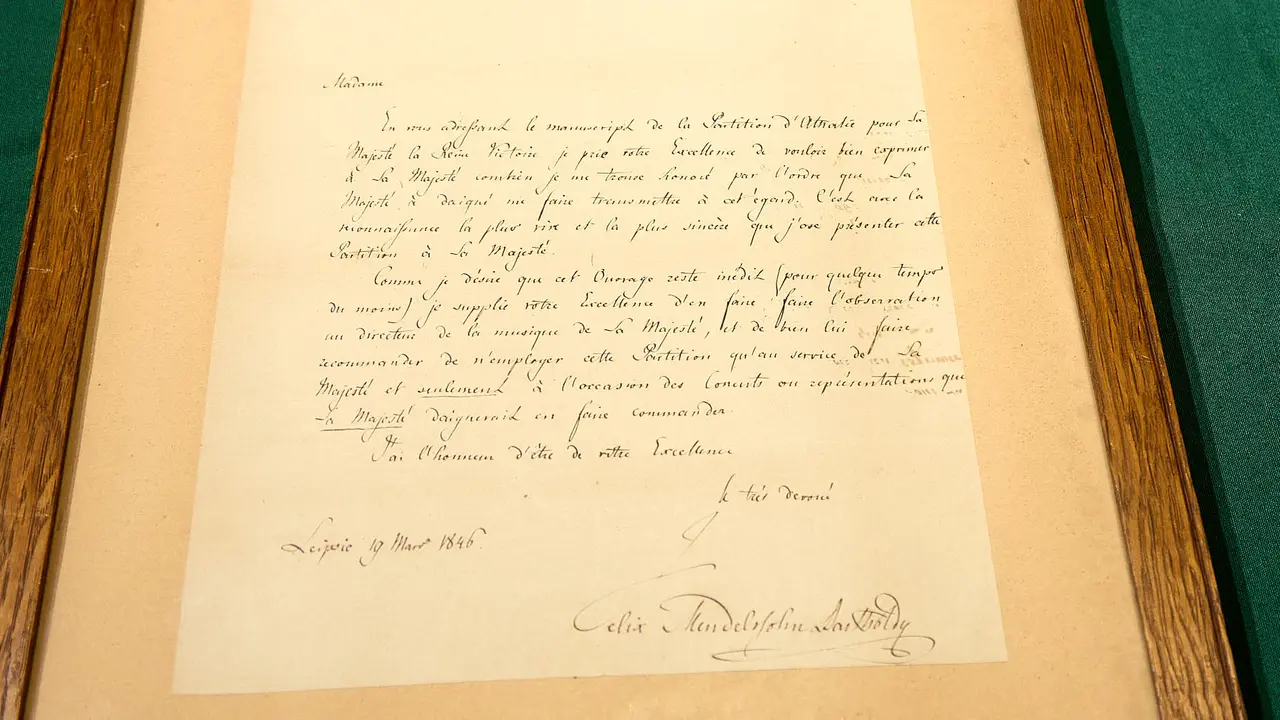 Madame
En vous adressant le manuscript de la Partition d'Athalie pour Sa
Majesté la Reine Victoire je prie votre Excellence de vouloir bien exprimer
à Sa Majesté combien je me trouve honoré par l'ordre que Sa
Majesté à daigné me faire transmettre à cet égard. C'est avec la
reconnaissance la plus vive et la plus sincère que j'ose présenter cette
Partition à Sa Majesté.
Comme je désire que cet Ouvrage reste inédit (pour quelque temps
du moins) je supplie votre Excellence d'en faire faire l'observation
au directeur de la musique de Sa Majesté, et de bien lui faire
recommander de n'employer cette Partition qu'au service de Sa
Majesté et seulement à l'occasion des Concerts ou représentations que
Sa Majesté daignerait en faire commander.
J'ai l'honneur d'être de votre Excellence
le très devoué
Leipsic 19 Mars 1846.
Felix Mendelssohn Bartholdy